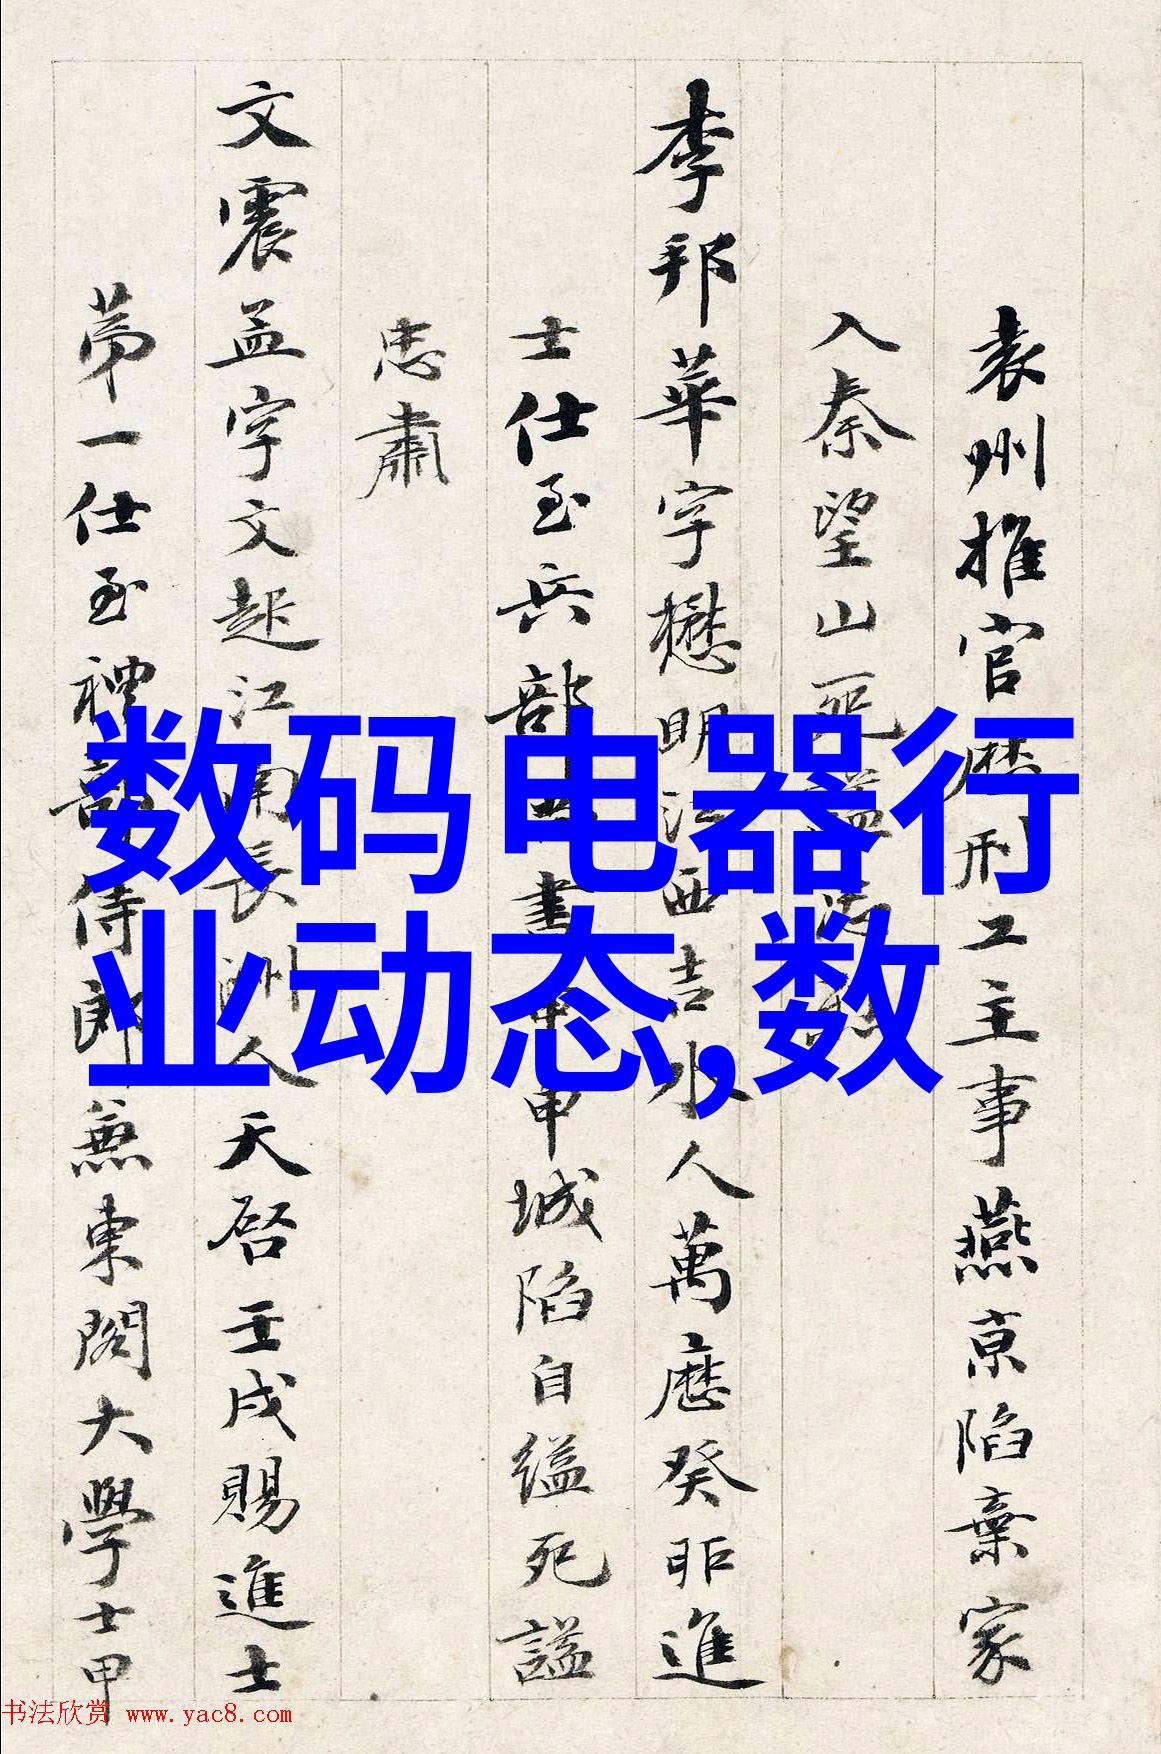 袁州推官歷刑工主事燕京陷棄家
入秦望山死謚
李邦華字懋明江西吉水人萬歷癸卯進
士仕至兵部尚書甲申城陷自縊死謚
忠肅
文震孟字文起江南長洲人天啓壬戌賜進士
第一仕至禮部侍郎兼東閣大學士甲
数码电器行
业动态,数
书法欣赏 www.yac8.com